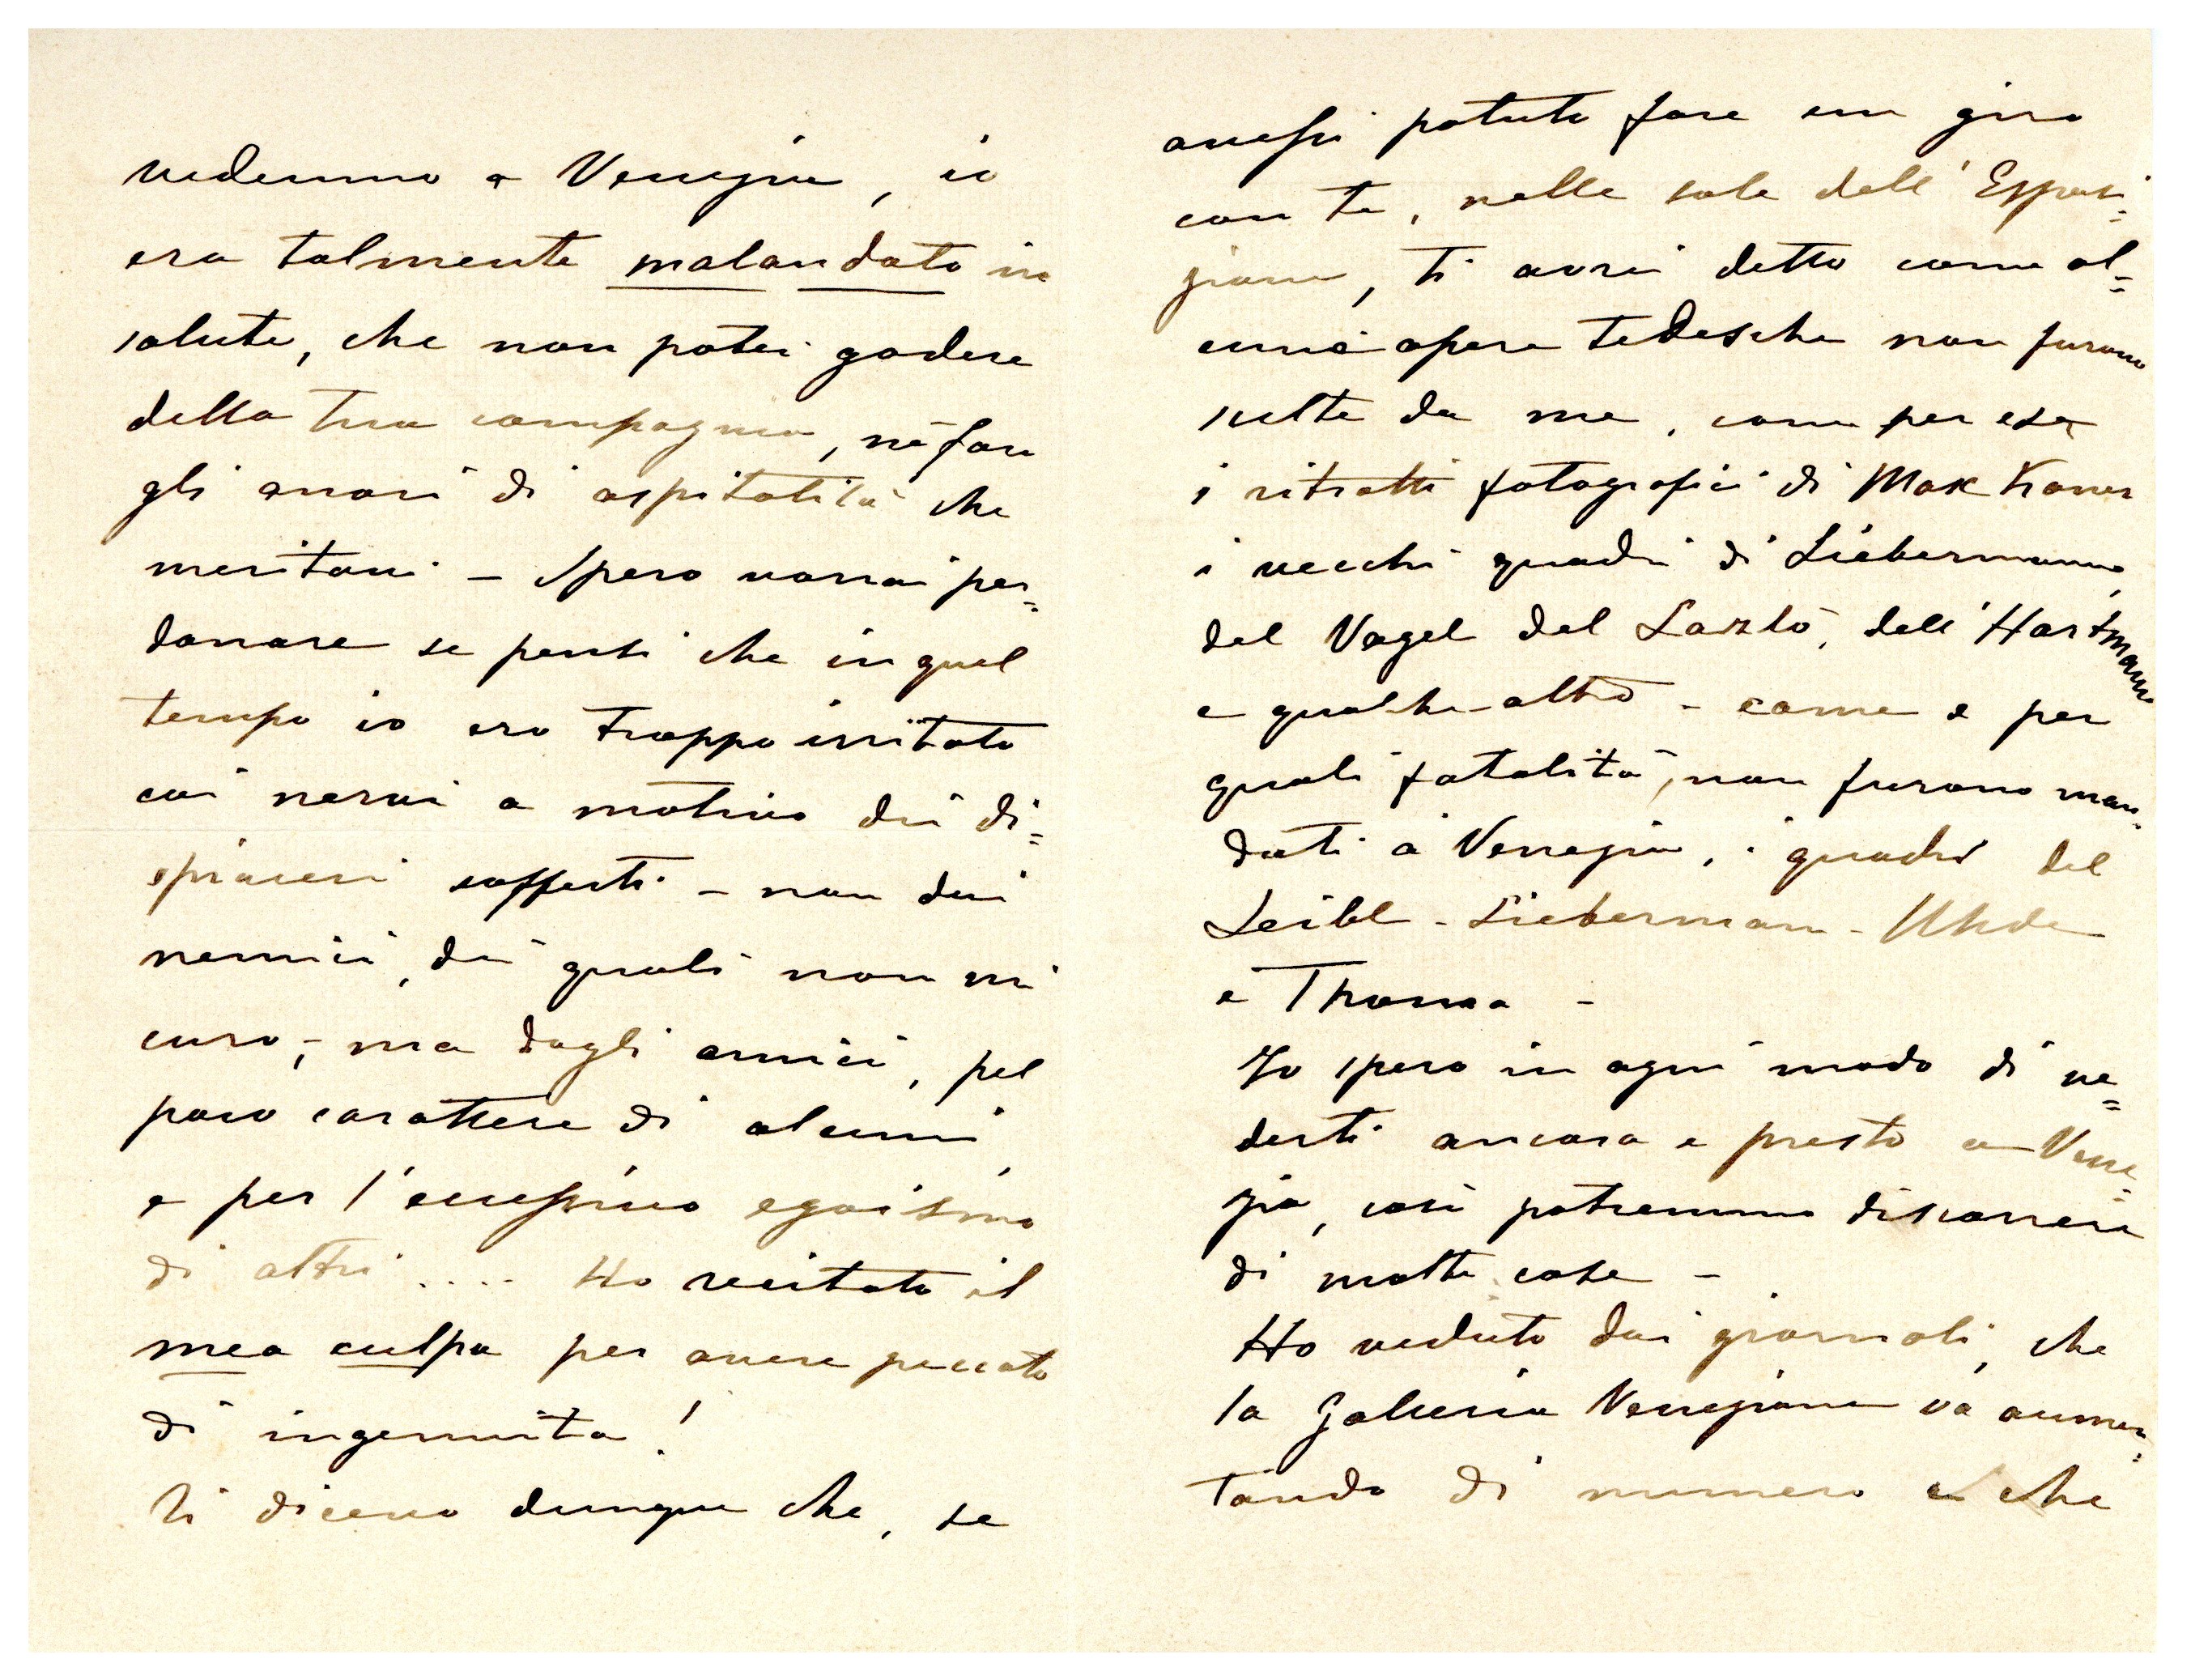 vedemmo a Venezia, io
era talmente malandato in
salute, che non potei godere
della tua compagnia, nè far
gli onori di ospitalità che
meritavi - Spero vorrai per=
donare se pensi che in quel
tempo io ero troppo irritato
coi nervi a motivo dei di=
spiaceri sofferti - non dai
nemici, dei quali non mi
curo, - ma dagli amici, pel
poco carattere di alcuni,
e per l'eccessivo egoismo
di altri .... Ho recitato il
mea culpa per avere peccato
di ingenuità!
Ti dicevo dunque che, se
avessi potuto fare un giro
con te, nelle sale dell'Esposi=
zione, ti avrei detto come al=
cune opere tedesche non furono
scelte da me, come per es
i ritratti fotografici di Max Koner
i vecchi quadri di Liebermann,
del Vogel del Laszlò, dell'Hartmann
e qualche altro - come e per
quali fatalità, non furono man=
dati a Venezia, i quadri del
Leibl - Lieberman - Uhde
e Thoma -
Io spero in ogni modo di ve=
derti ancora e presto a Vene=
zia, così potremmo discorrere
di molte cose -
Ho veduto dai giornali, che
la Galleria Veneziana va aumen=
tando di numero e che